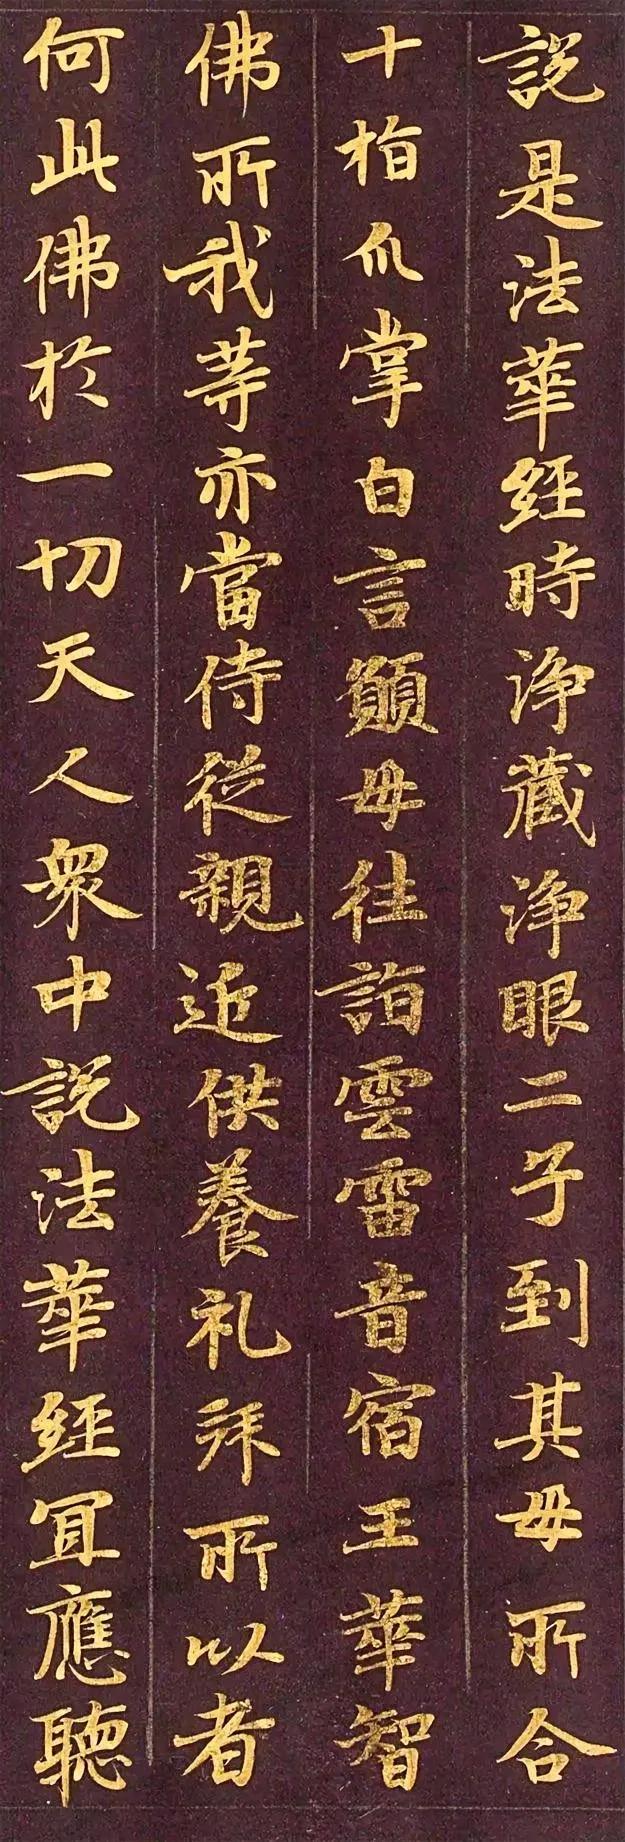 說是法華經時淨藏淨眼二子到其母所合
十指爪掌白言願母往詣雲雷音宿王華智
佛所我等亦當侍從親近供養礼拜所以者
何此佛於一切天人眾中說法華經宜應聽